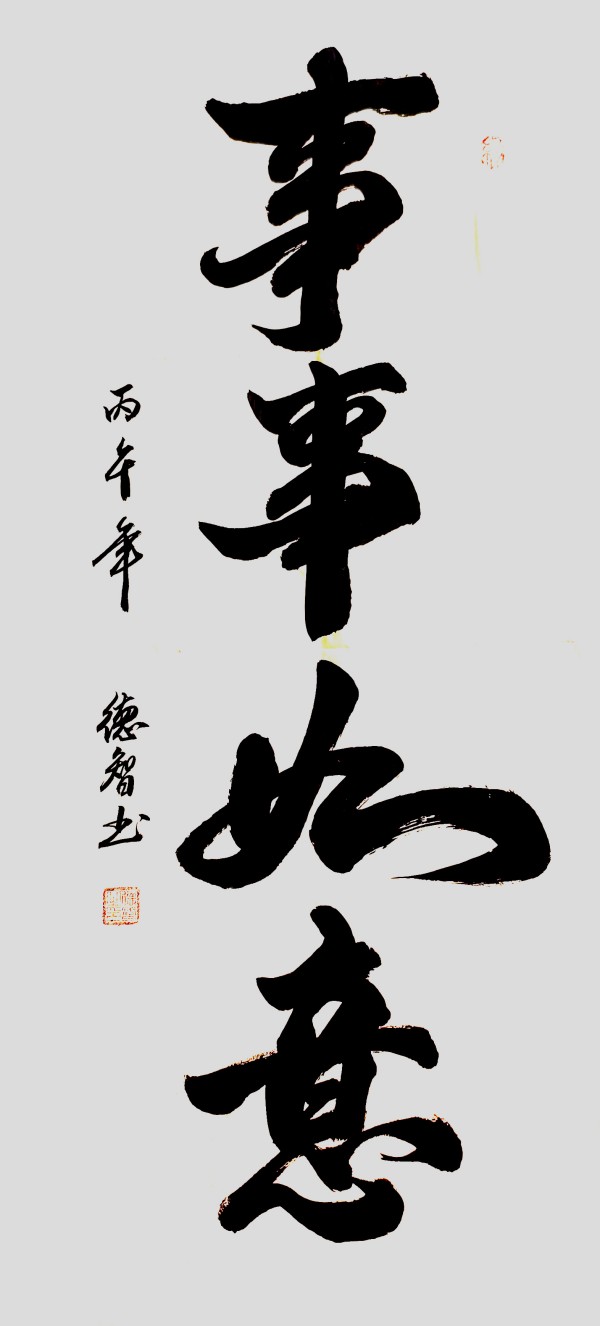 事事如意
丙午年 德智书